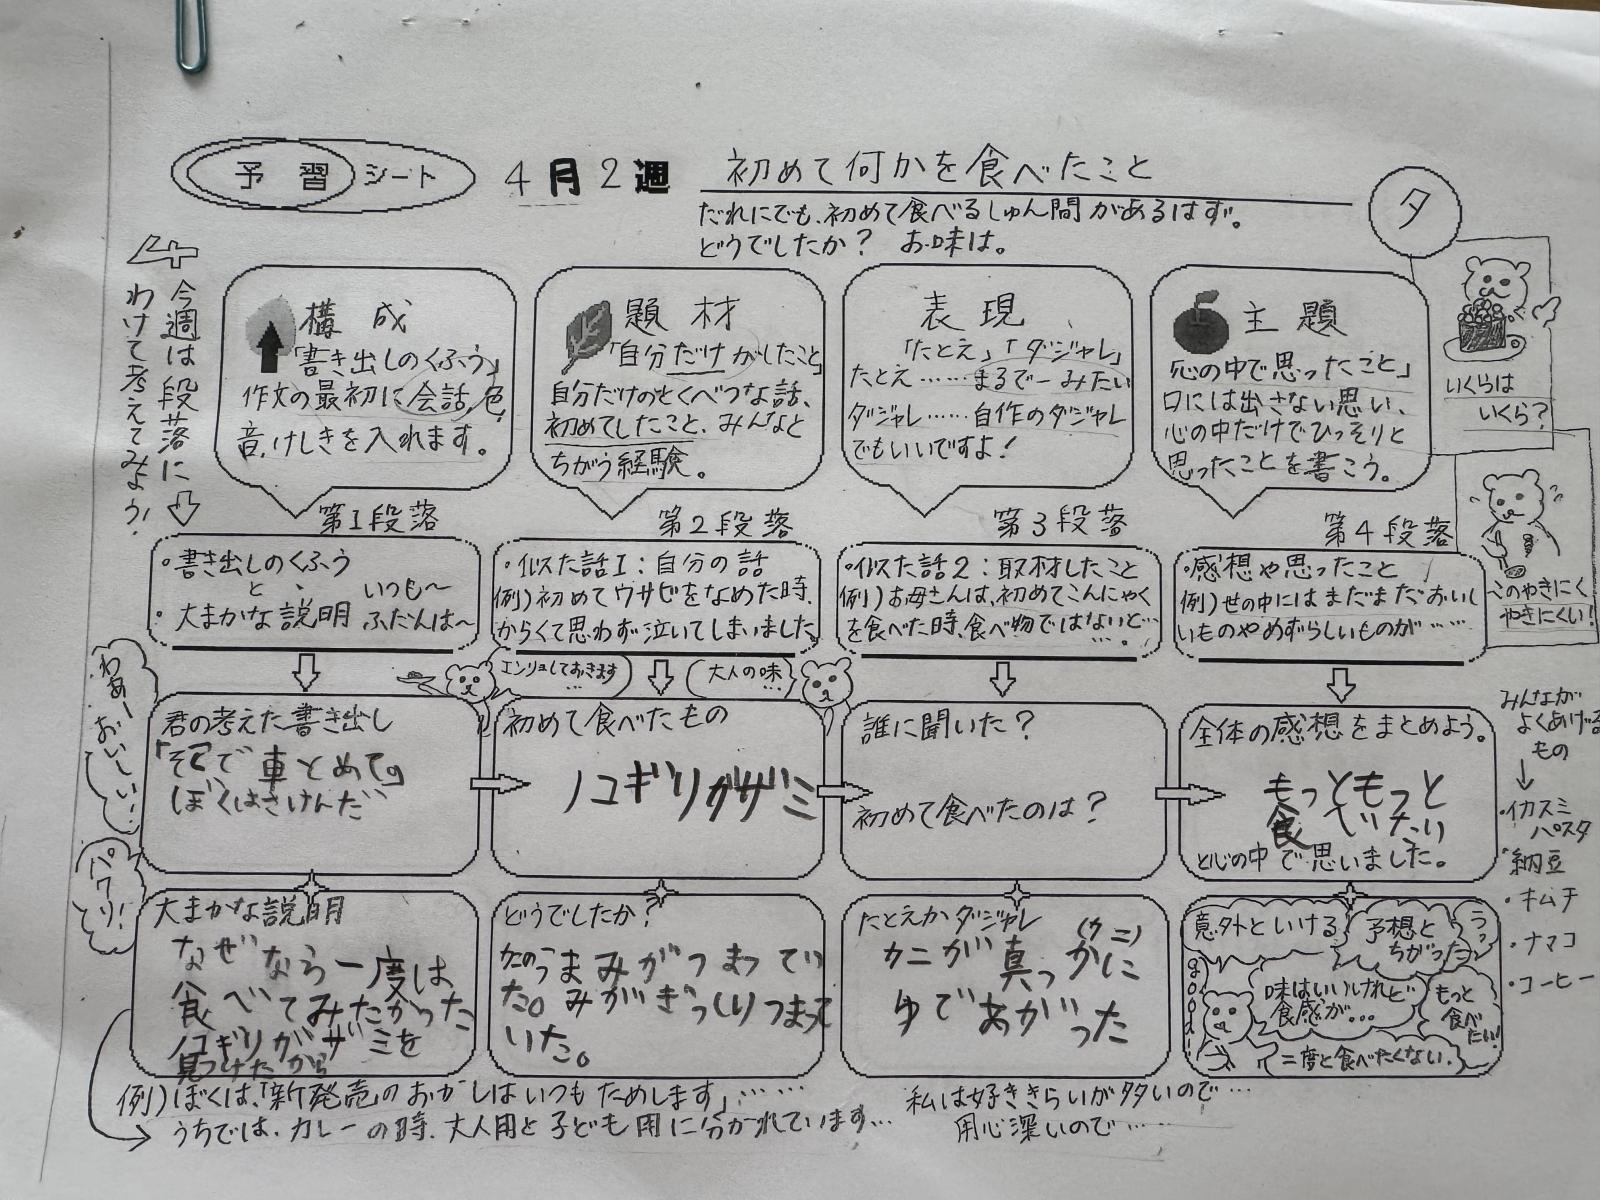 予習シート
4月2週
初めて何かを食べたこと
だれにでも、初めて食べるしゅん間があるはず。
どうでしたか? お味は。
タ
今週は段落に
わけて考えてみよう!
構成
「書き出しのくふう」
作文の最初に会話、色、
音、けしきを入れます。
題材
「自分だけがしたこと」
自分だけのとくべつな話、
初めてしたこと、みんなと
ちがう経験。
表現
「たとえ」「ダジャレ」
たとえ……まるで―みたい
ダジャレ……自作のダジャレ
でもいいですよ!
主題
「心の中で思ったこと」
口には出さない思い、
心の中だけでひっそりと
思ったことを書こう。
いくらは
いくら?
このやきにく
やきにくい!
第1段落
・書き出しのくふう
と、
いつも~
・大まかな説明 ふだんは~
第2段落
・似た話1:自分の話
例)初めてワサビをなめた時、
からくて思わず泣いてしまいました。
第3段落
・似た話2:取材したこと
例)お母さんは、初めてこんにゃく
を食べた時、食べ物ではないと…
…。
第4段落
・感想や思ったこと
例)世の中にはまだまだおいし
いものやめずらしいものが……
わあーおいしい!
パクリ!
エンリョしておきます
…
大人の味
…
君の考えた書き出し
「そこで車とめて。」
ぼくはさけんだ
初めて食べたもの
ノコギリガザミ
誰に聞いた?
初めて食べたのは?
全体の感想をまとめよう。
もっともっと
食べたい
と心の中で思いました。
みんなが
よくあげる
もの
・イカスミ
パスタ
・納豆
・キムチ
・ナマコ
・コーヒー
大まかな説明
なぜなら一度は
食べてみたかった
ノコギリガザミを
見つけたから
どうでしたか?
カニのうまみがつまってい
た。みがぎっしりつまって
いた。
たとえかダジャレ
カニが真っかに
(カニ)
ゆであがった
意外といける
予想と
ちがった
うっ
味はいいけれど
食感が…
もっと
食べたい!
二度と食べたくない。
例)ぼくは、「新発売」のおかしはいつもためします」……
うちでは、カレーの時、大人用と子ども用に分かれています…
私は好ききらいが多いので…
用心深いので……